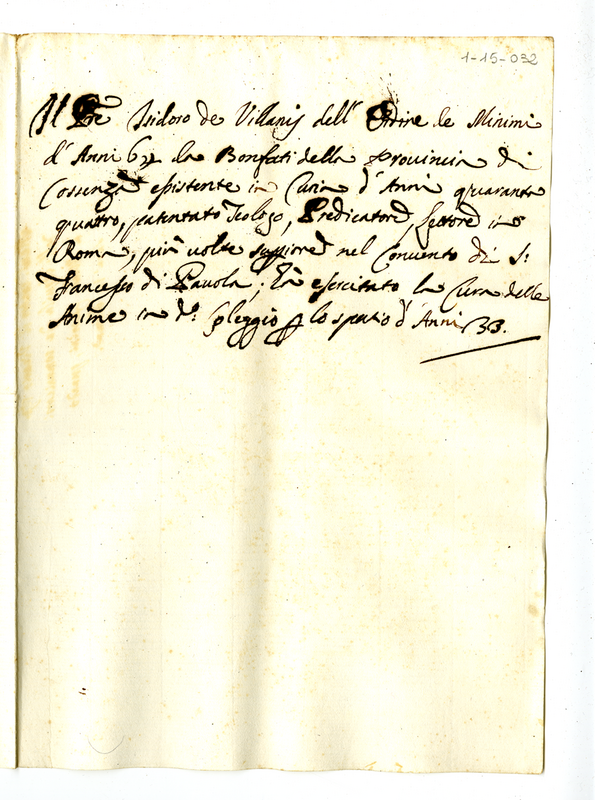 1-15-032
Il Pre Isidoro de Villanis dell' Ordine de Minimi
d'Anni 62 da Bonfati della Provincia di
Cossenza esistente in Curia d'Anni quaranta
quattro, patentato Teologo, Predicatore, Lettore in
Roma, più volte suppiore nel Convento di S:
Francesco di Pauola; Ha esercitato la Cura delle
Anime in do: Colleggio p lo spatio d'Anni 33.